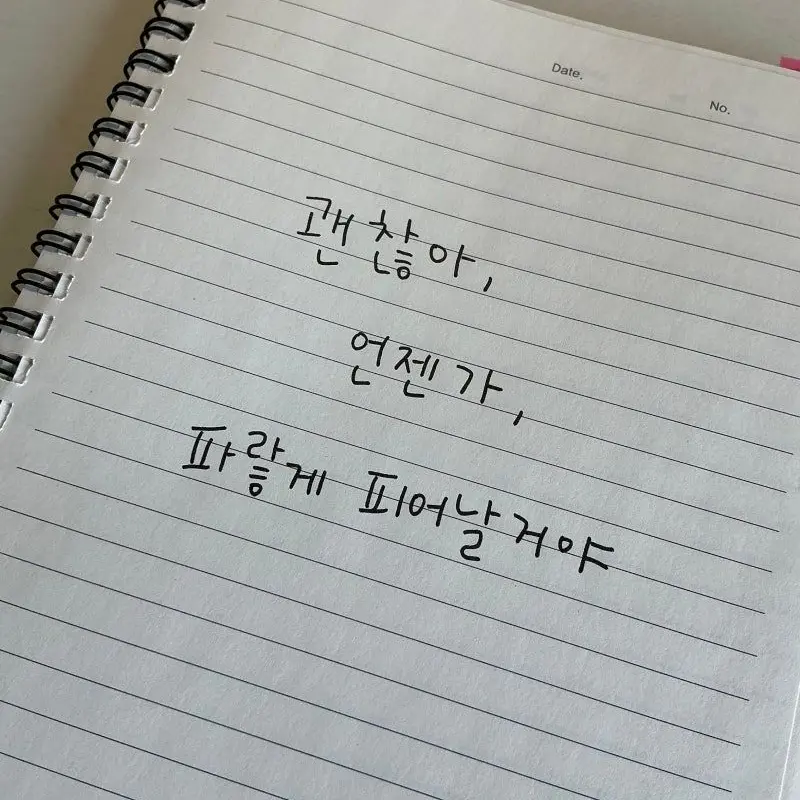 Date.
No.
괜찮아,
언젠가,
파랗게 피어날거야